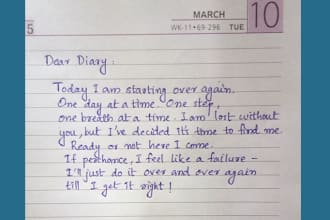 MARCH
10
5
WK-11•69-296 TUE
Dear Diary:
Today I am starting over again.
One day at a time. One step,
one breath at a time. I am lost without
you, but I've decided it's time to find me.
Ready or not here I come.
If perchance, I feel like a failure –
I'll just do it over and over again
till I get it right!